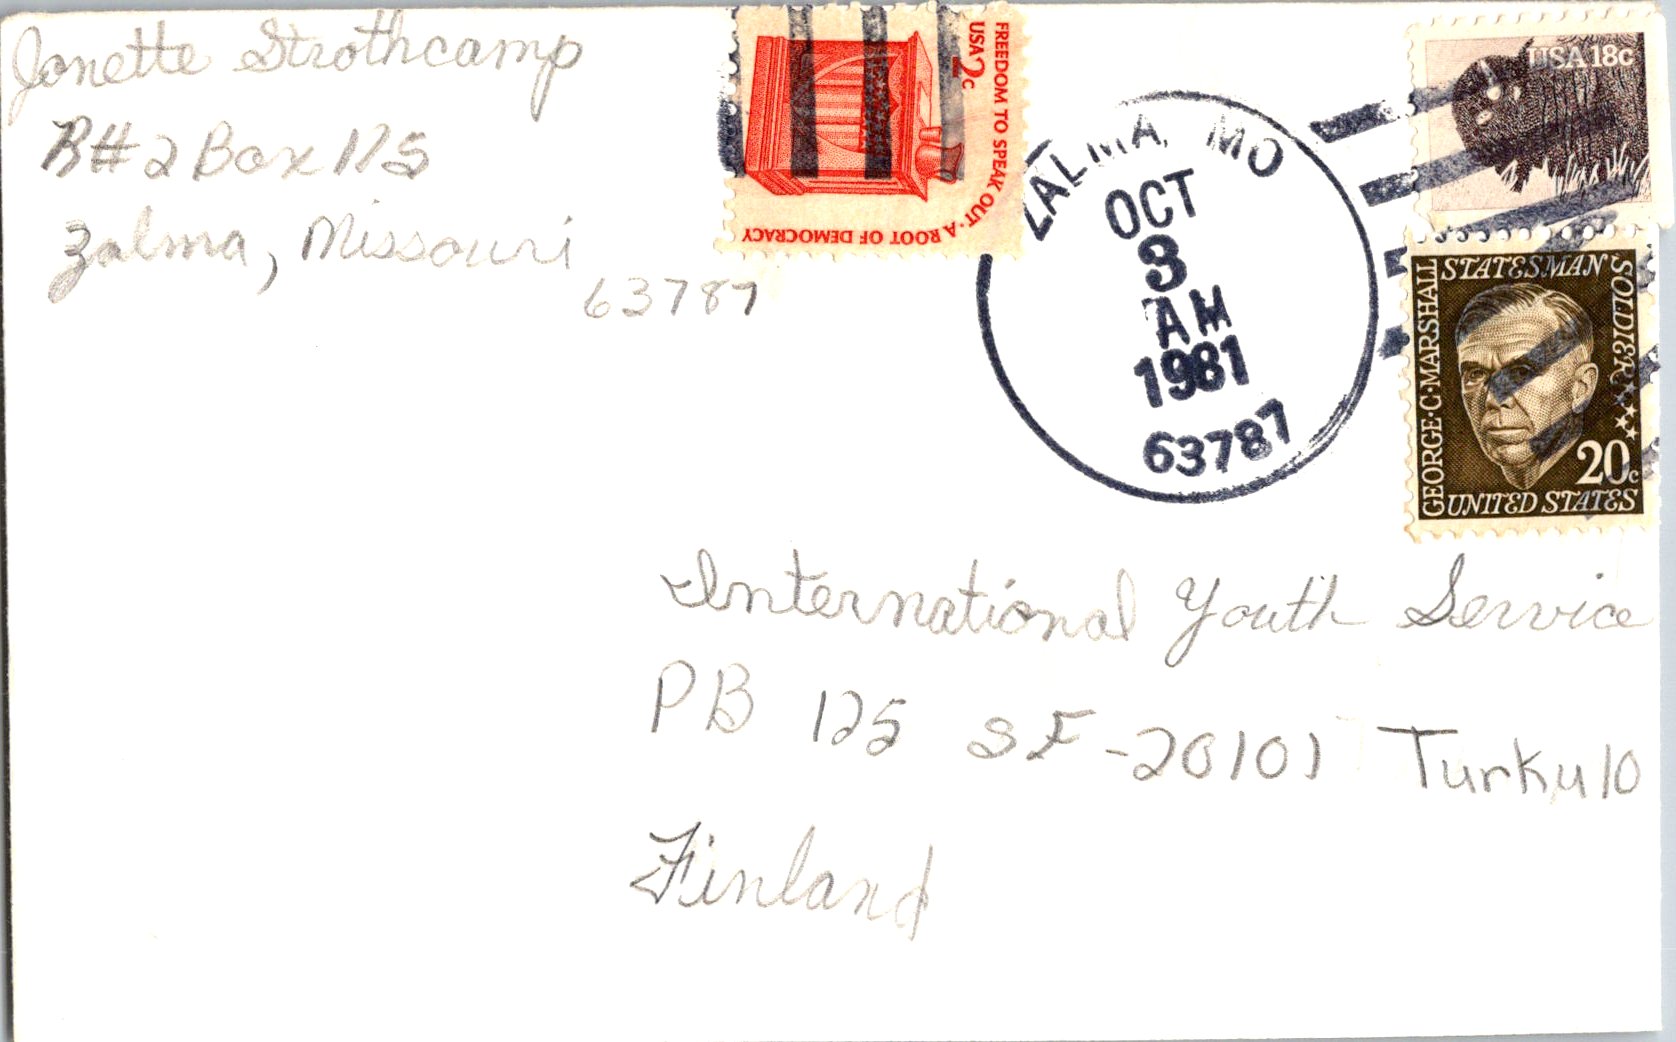 Jonette Strothcamp
R#2 Box 175
Zalma, Missouri
63787
FREEDOM TO SPEAK OUT · A ROOT OF DEMOCRACY
USA 2c
ZALMA, MO
OCT
3
AM
1981
63787
USA 18c
GEORGE · C · MARSHALL
STATESMAN
SOLDIER
20c
UNITED STATES
International Youth Service
PB 125 SF-20101 Turku 10
Finland